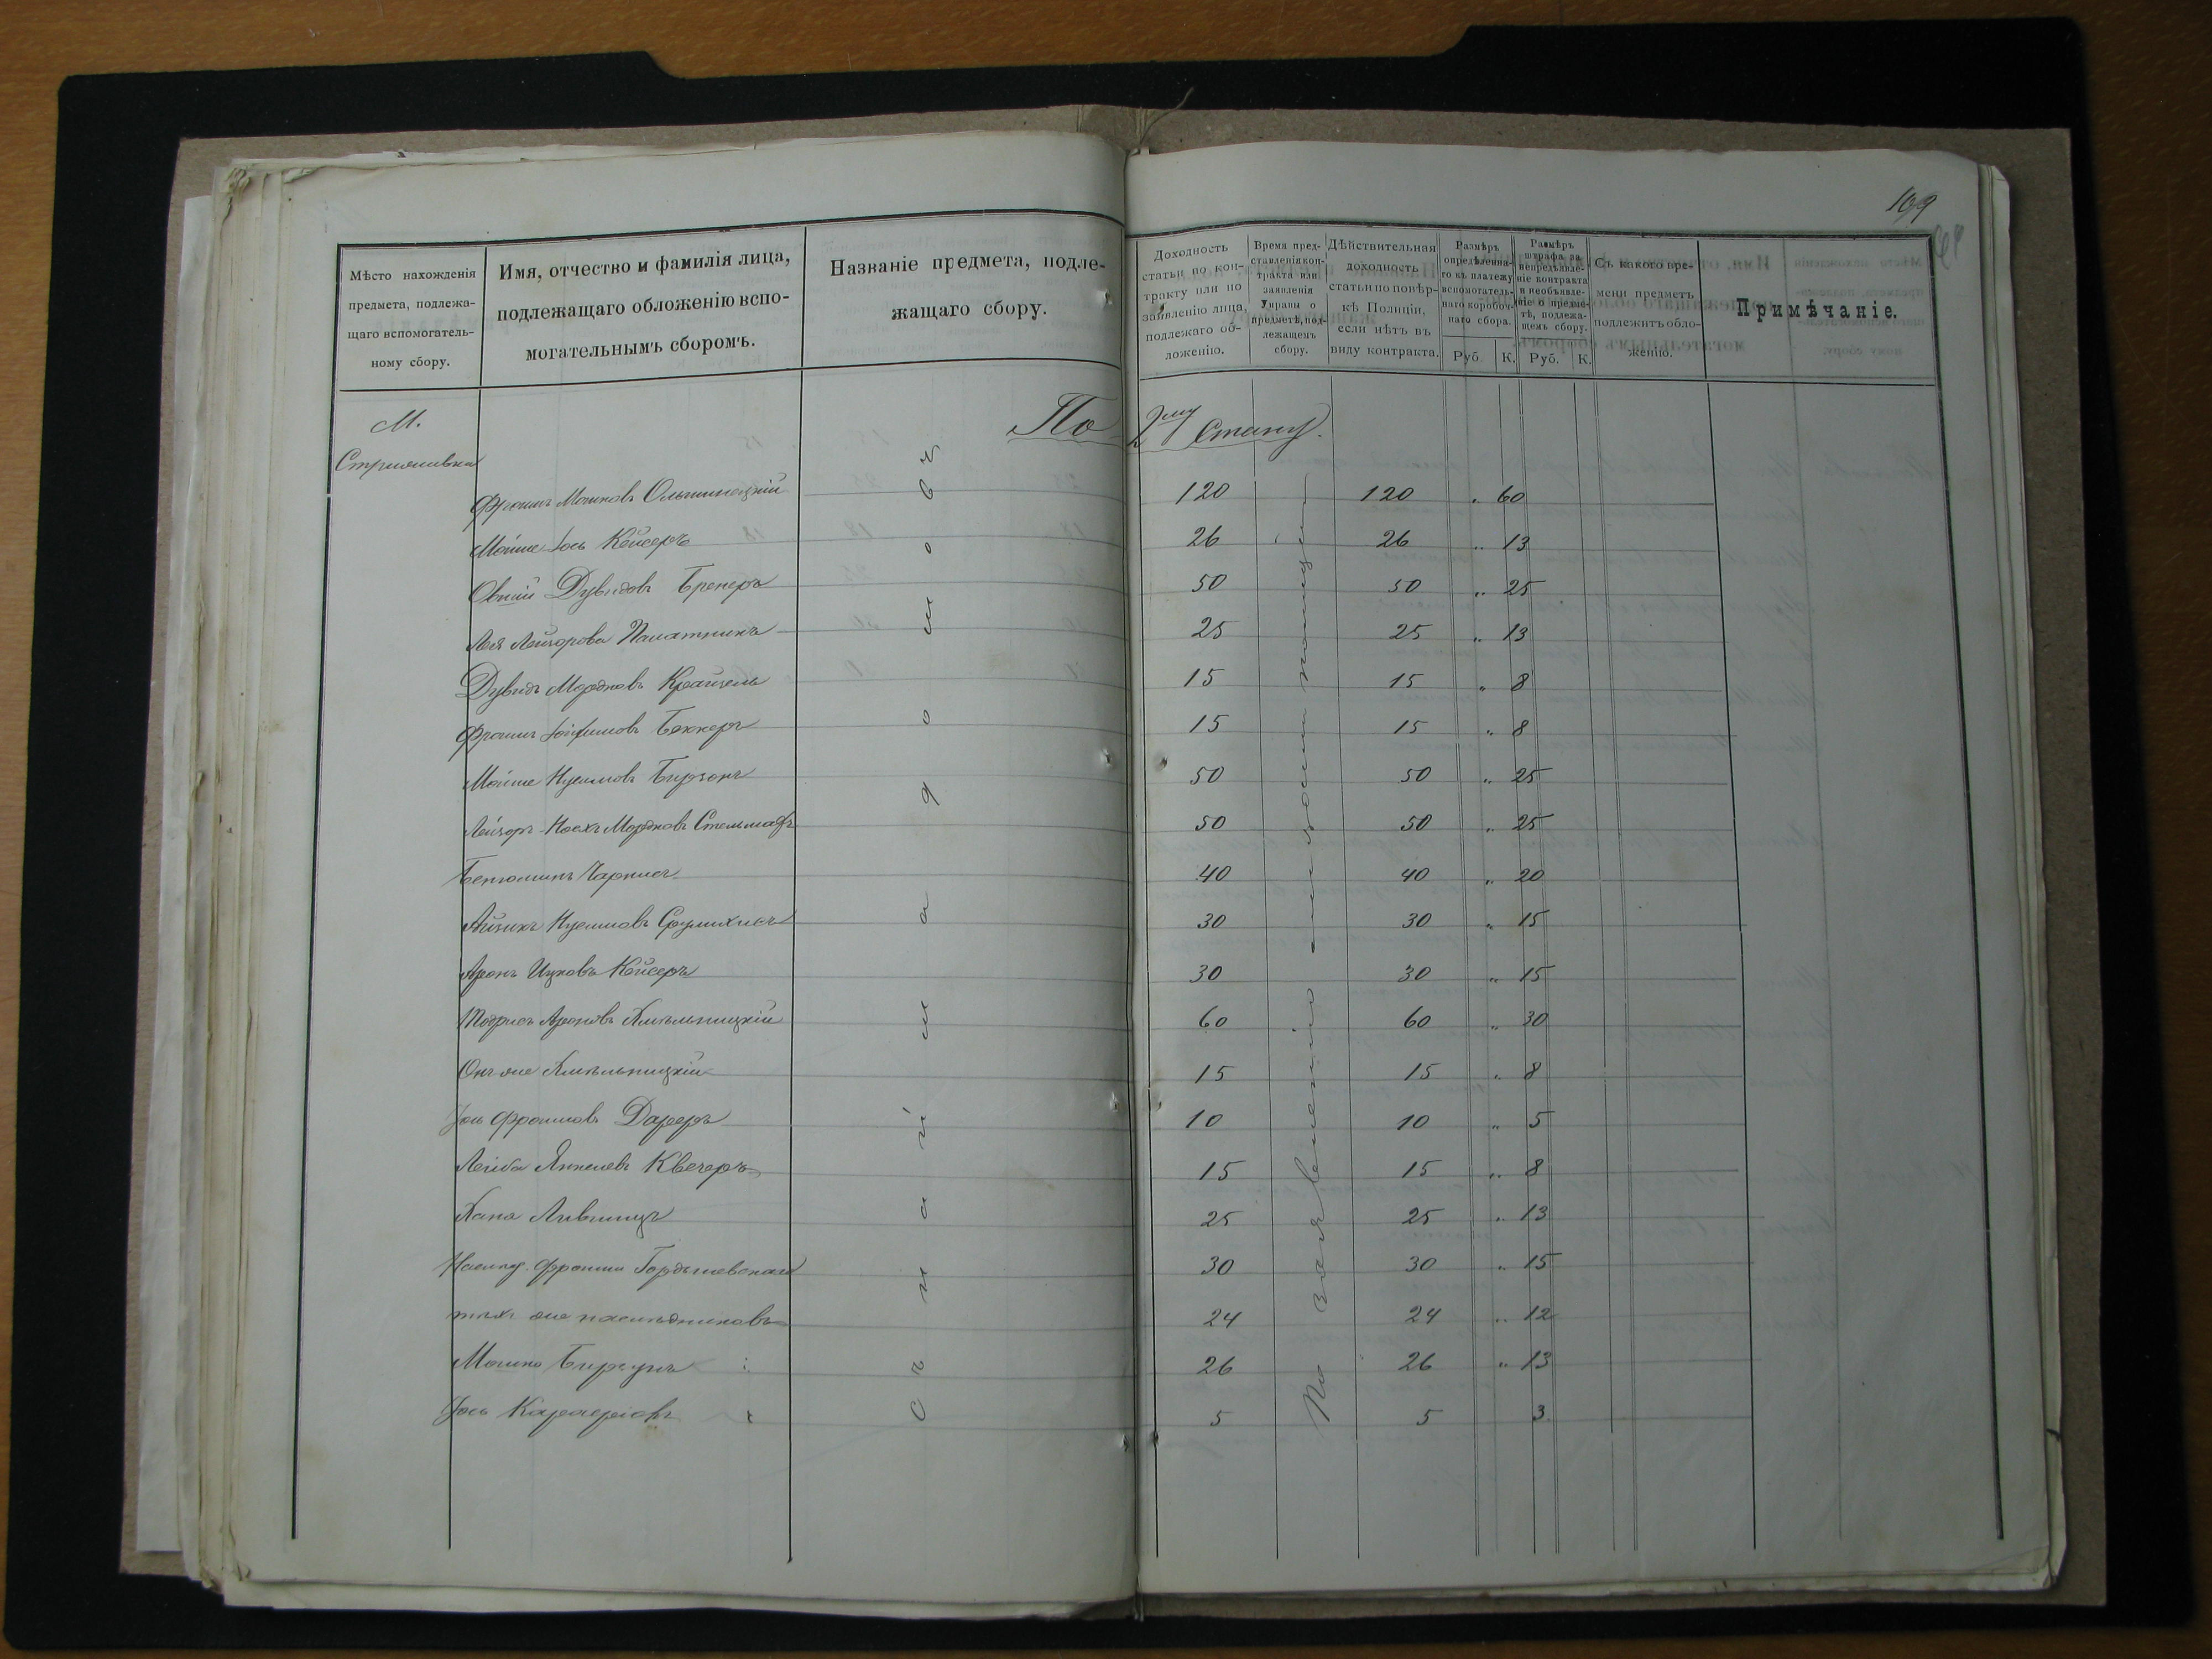 109
Мѣсто нахожденія предмета, подлежащаго вспомогательному сбору.
Имя, отчество и фамилія лица, подлежащаго обложенію вспомогательнымъ сборомъ.
Названіе предмета, подлежащаго сбору.
Доходность статьи по контракту или по заявленію лица, подлежаго обложенію.
Время представленія контракта или заявленія Управы о предметѣ, подлежащемъ сбору.
Дѣйствительная доходность статьи по повѣркѣ Полиціи, если нѣтъ въ виду контракта.
Размѣръ опредѣленнаго къ платежу вспомогательнаго коробочнаго сбора. Руб. К.
Размѣръ штрафа за непредъявленіе контракта и необъявленіе о предметѣ, подлежащемъ сбору. Руб. К.
Съ какого времени предметъ подлежитъ обложенію.
Примѣчаніе.
М.
По 2му Стану.
Стрижавка
Фроимъ Мошковъ 120 120 „ 60
Мойше Іось Койсеръ 26 26 „ 13
Овшій Дувидовъ 50 50 „ 25
Лея Лейзорова Палатникъ 25 25 „ 13
Дувидъ Мордковъ 15 15 „ 8
Фроимъ Беккеръ 15 15 „ 8
Мойше Нухимовъ 50 50 „ 25
Лейзоръ-Ноехъ Мордковъ Стельмахъ 50 50 „ 25
Бенюминъ Чарнисъ 40 40 „ 20
Айзикъ Нухимовъ 30 30 „ 15
Аронъ Ицковъ Койсеръ 30 30 „ 15
Тодрисъ Ароновъ Хмѣльницкій 60 60 „ 30
Онъ же Хмѣльницкій 15 15 „ 8
Іось Фроимовъ 10 10 „ 5
Лейба Янкелевъ Квечеръ 15 15 „ 8
Хана Лившицъ 25 25 „ 13
Наслѣд. Фроима 30 30 „ 15
тѣхъ же наслѣдниковъ 24 24 „ 12
Мошко 26 26 „ 13
Іось 5 5 3
Съ найма домовъ
По заявленію